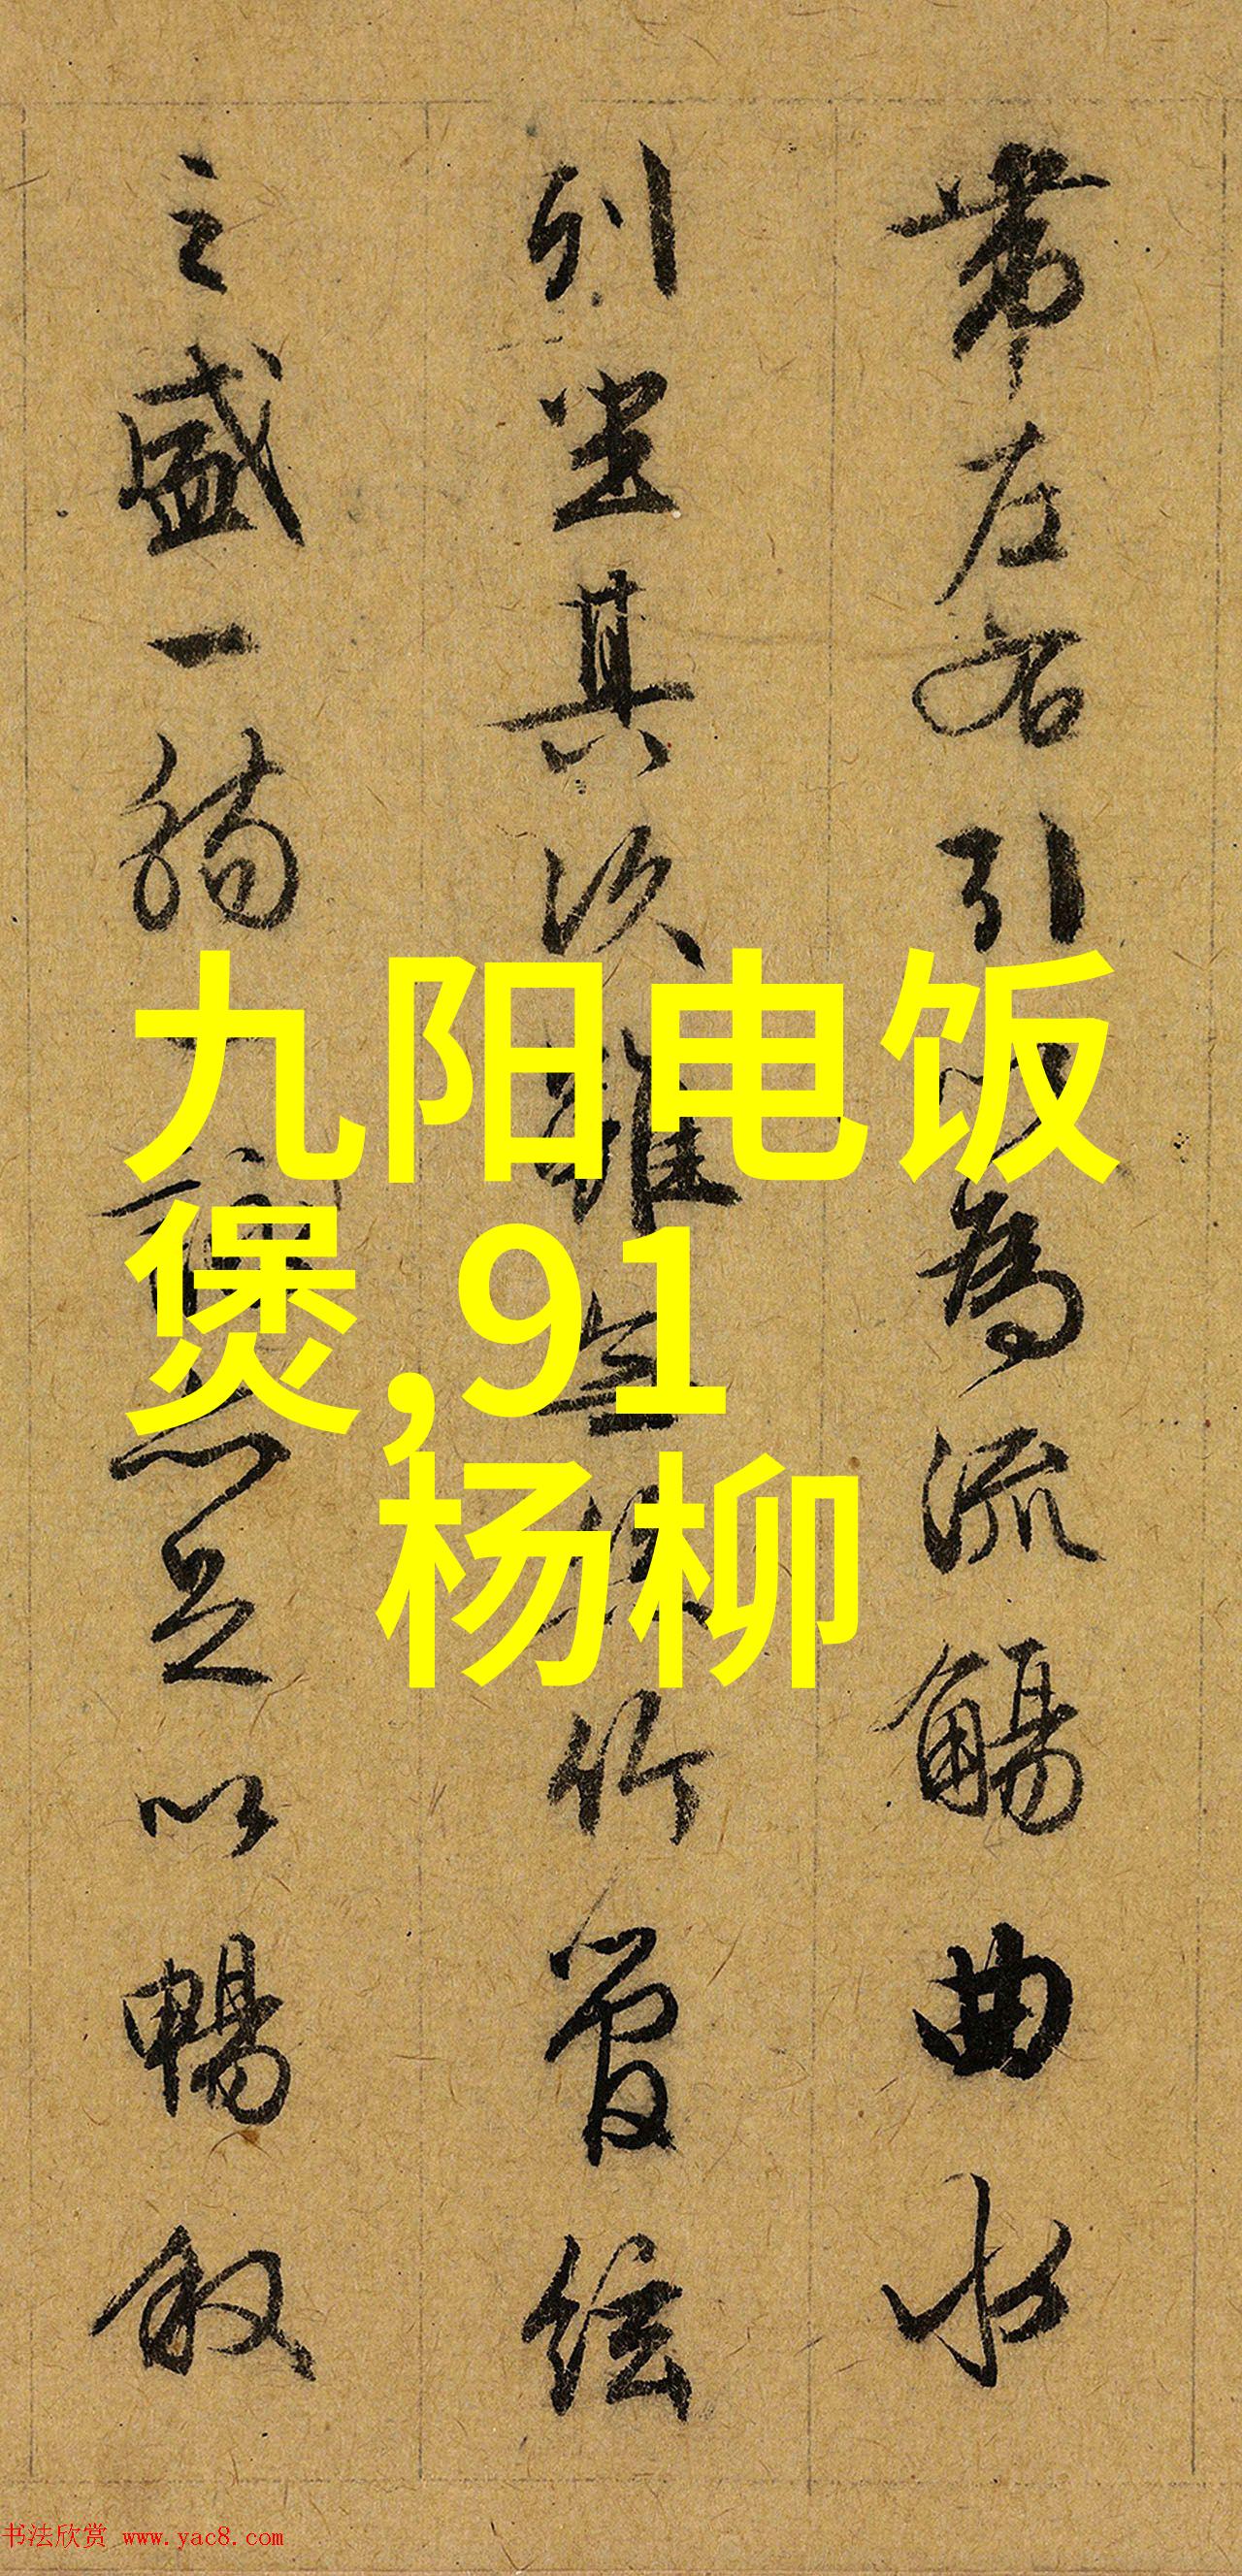 帶左右引以為流觴曲水
列坐其次雖無絲竹管絃
之盛一觴一詠亦足以暢敘
九阳电饭
煲,91
杨柳
书法欣赏 www.yac8.com